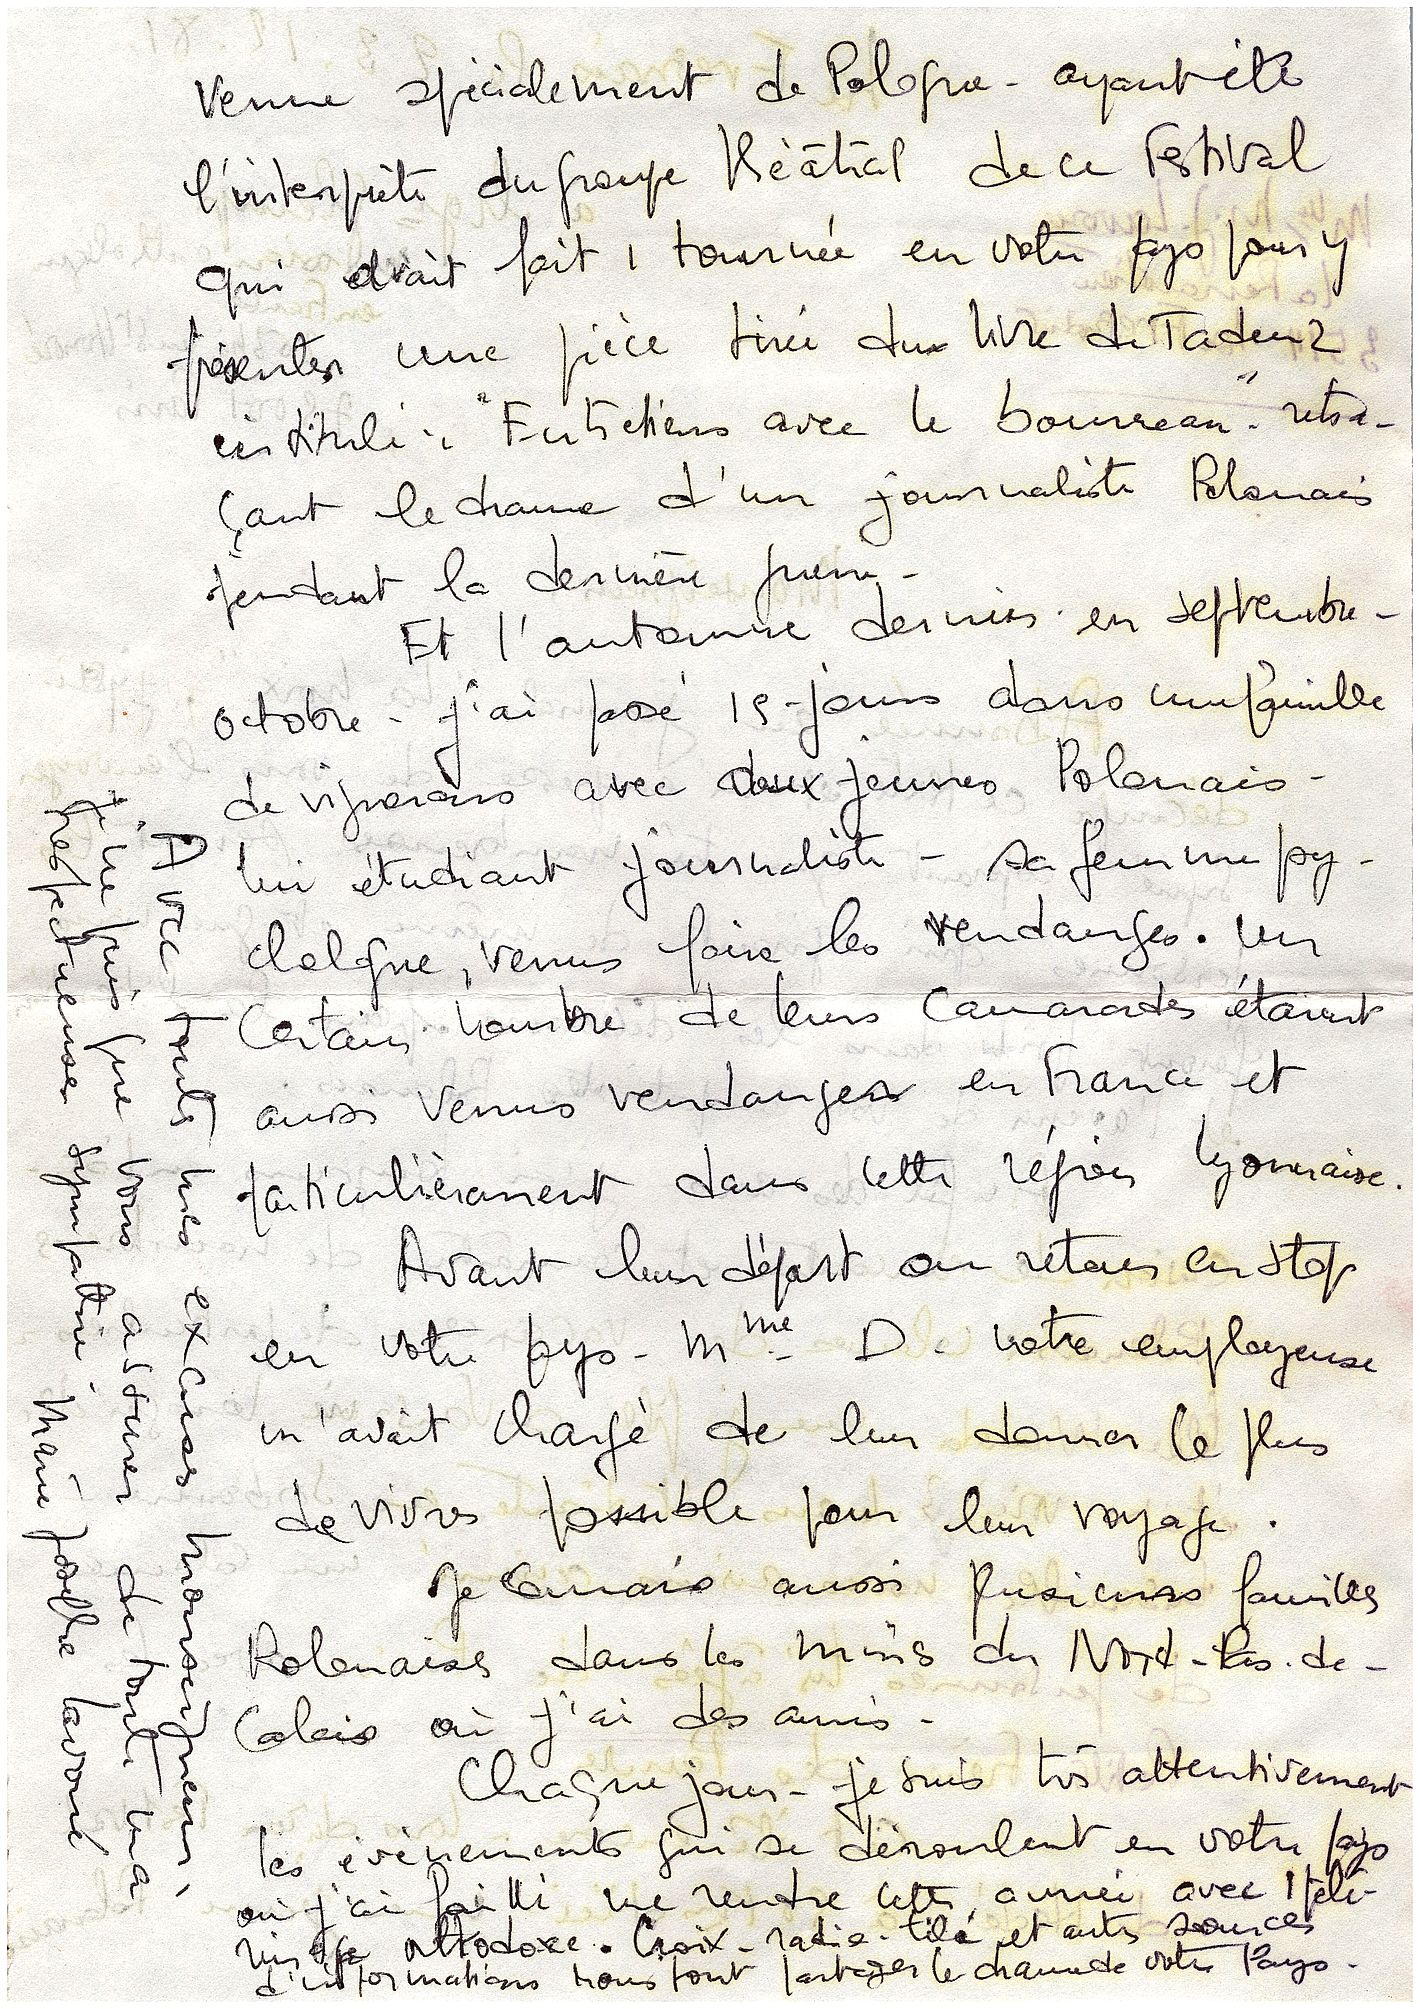 venue spécialement de Pologne - ayant été
l'interprète du groupe théâtral de ce Festival
qui avait fait 1 tournée en votre pays pour y
présenter une pièce tirée du livre de Tadeuz
intitulé : "Entretiens avec le bourreau". retra-
çant le drame d'un journaliste Polonais
pendant la dernière guerre -
Et l'automne dernier en septembre -
octobre - j'ai passé 15 jours dans une famille
de vignerons avec deux jeunes Polonais -
lui étudiant journaliste - sa femme psy-
chologue, venus faire les vendanges. Un
certain nombre de leurs camarades étaient
aussi venus vendanger en France et
particulièrement dans cette région lyonnaise.
Avant leur départ ou retour en stop
en votre pays - Mme - D. notre employeuse
m'avait chargé de leur donner le plus
de vivres possible pour leur voyage.
Je connais aussi plusieurs familles
Polonaises dans les mines du Nord-Pas-de-
Calais où j'ai des amis -
Chaque jour - je suis très attentivement
les évènements qui se déroulent en votre pays
où j'ai failli me rendre cette année avec 1 pèle-
rinage orthodoxe. Croix - radio - télé et autres sources
d'informations nous font partager le drame de votre Pays -
Avec toutes mes excuses Monseigneur,
je ne puis que vous assurer de toute ma
respectueuse sympathie. Marie Josèphe Lavoué